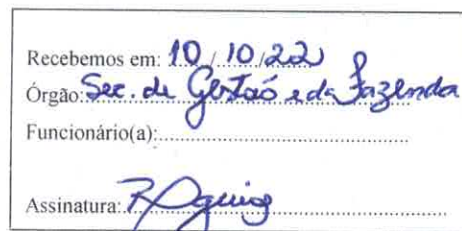 Recebemos em: 10/10/22
Órgão: Sec. de Gestão e da Fazenda
Funcionário(a):
Assinatura: